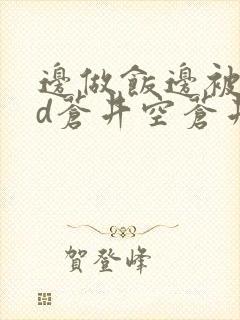 邊做飯邊被
d蒼井空蒼井
賀登峰